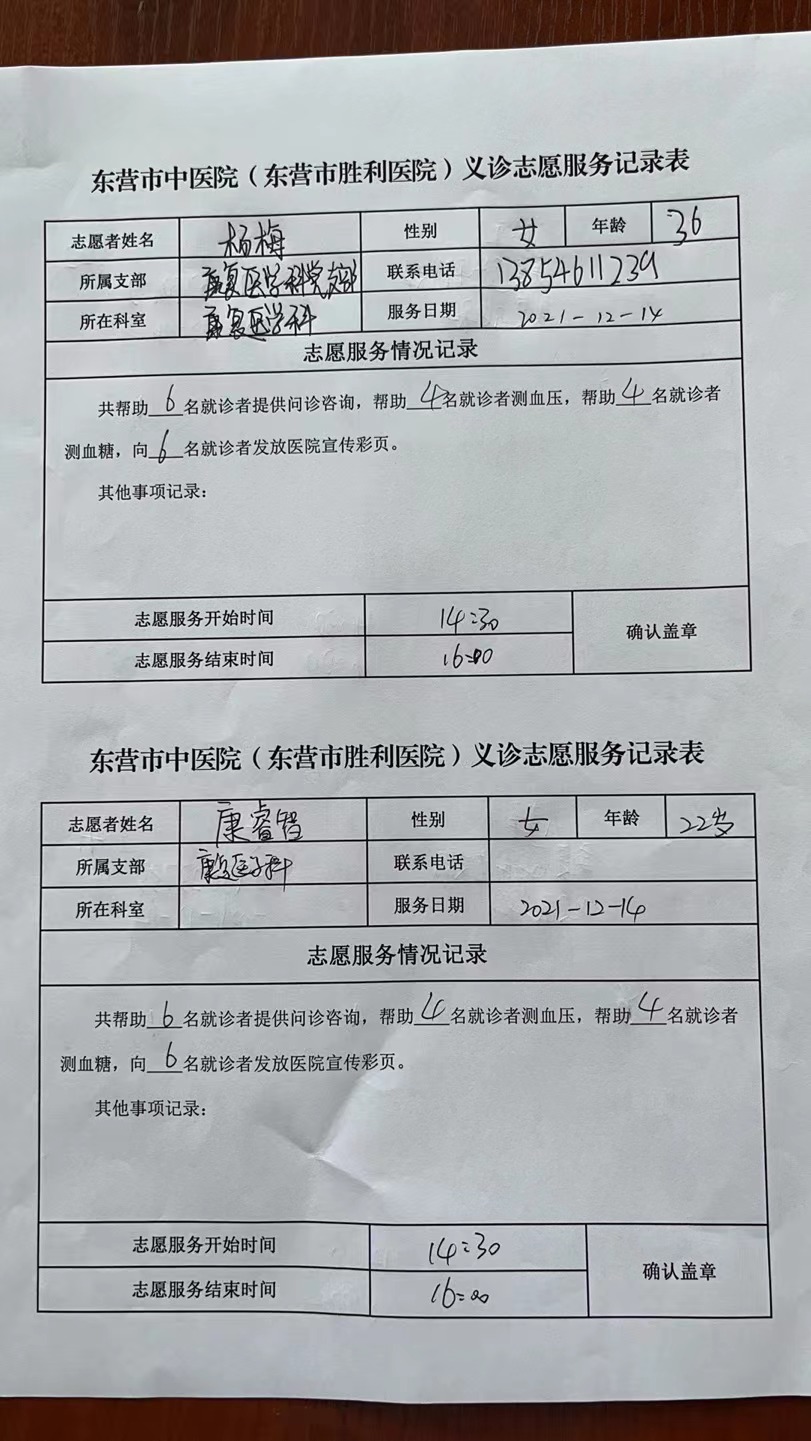 东营市中医院（东营市胜利医院）义诊志愿服务记录表
志愿者姓名 杨梅 性别 女 年龄 36
所属支部 康复医学科党支部 联系电话 13854611239
所在科室 康复医学科 服务日期 2021-12-14
志愿服务情况记录
共帮助6名就诊者提供问诊咨询，帮助4名就诊者测血压，帮助4名就诊者
测血糖，向6名就诊者发放医院宣传彩页。
其他事项记录：
志愿服务开始时间 14:30 确认盖章
志愿服务结束时间 16:00
东营市中医院（东营市胜利医院）义诊志愿服务记录表
志愿者姓名 康睿智 性别 女 年龄 22岁
所属支部 康复医学科 联系电话
所在科室 服务日期 2021-12-14
志愿服务情况记录
共帮助6名就诊者提供问诊咨询，帮助4名就诊者测血压，帮助4名就诊者
测血糖，向6名就诊者发放医院宣传彩页。
其他事项记录：
志愿服务开始时间 14:30 确认盖章
志愿服务结束时间 16:00